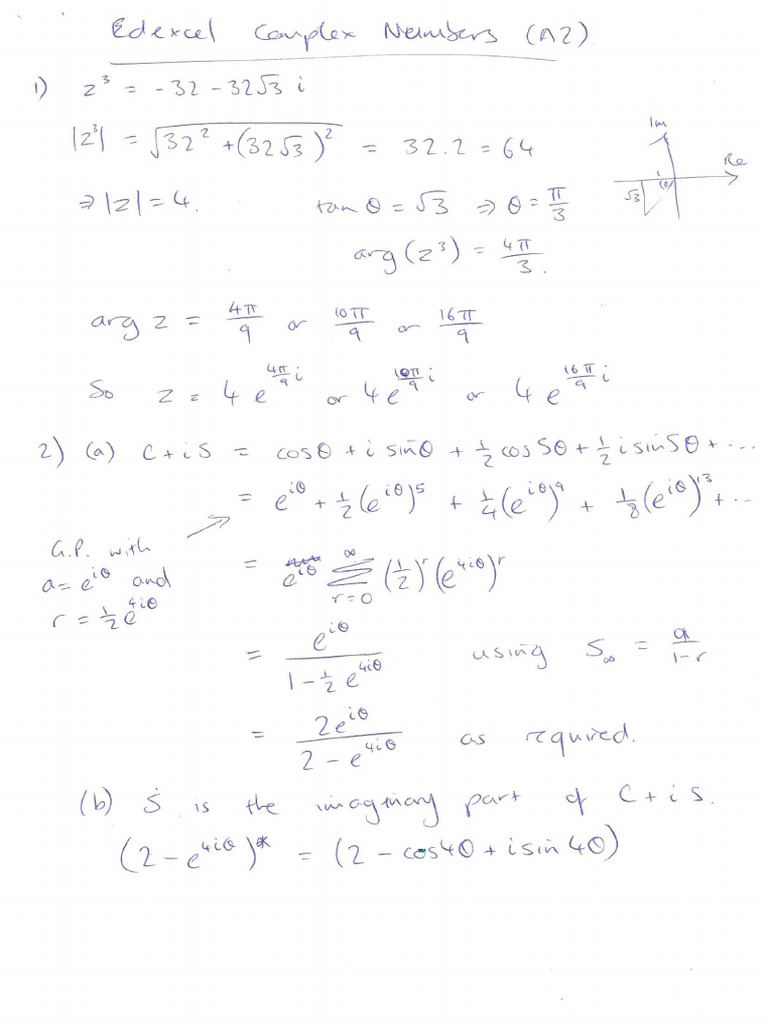 Edexcel Complex Numbers (A2)
1) z³ = -32 - 32√3 i
|z³| = √(32² + (32√3)²) = 32.2 = 64
⇒ |z| = 4. tan θ = √3 ⇒ θ = π/3
Im
Re
√3
1
θ
arg(z³) = 4π/3.
arg z = 4π/9 or 10π/9 or 16π/9
So z = 4e^(4π/9 i) or 4e^(10π/9 i) or 4e^(16π/9 i)
2) (a) C + iS = cosθ + i sinθ + ½ cos5θ + ½ i sin5θ + ...
= e^(iθ) + ½(e^(iθ))⁵ + ¼(e^(iθ))⁹ + ⅛(e^(iθ))¹³ + ...
G.P. with
a = e^(iθ) and
r = ½e^(4iθ)
= e^(iθ) ∑_(r=0)^∞ (½)^r (e^(4iθ))^r
= e^(iθ) / (1 - ½ e^(4iθ)) using S_∞ = a/(1-r)
= 2e^(iθ) / (2 - e^(4iθ)) as required.
(b) S is the imaginary part of C + iS.
(2 - e^(4iθ))* = (2 - cos4θ + i sin 4θ)